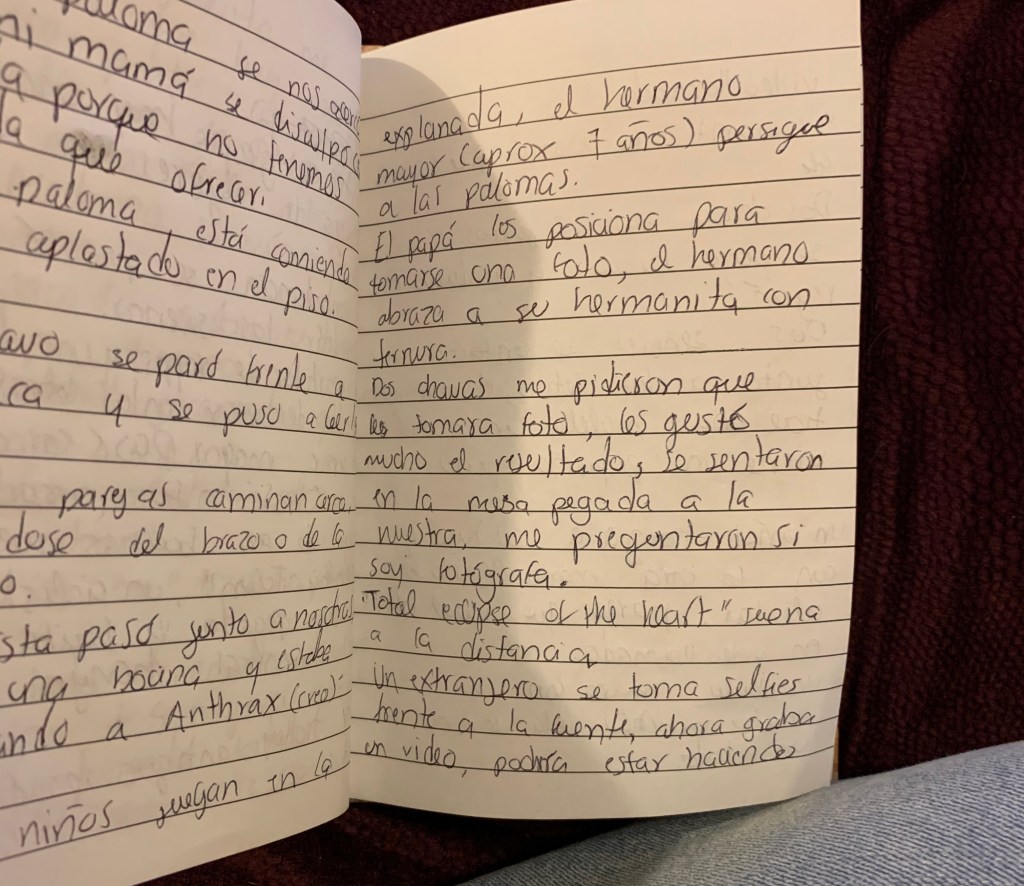 paloma se nos acer
mi mamá se disculpa
a porque no tenemos
da que ofrecer.
paloma está comiendo
aplastado en el piso.
avo se paró frente a
ca y se puso a leerl
parejas caminan
dose del brazo o de la
o.
sta pasó junto a nosotros
una bocina y estaba
ando a Anthrax (creo).
niños juegan en la
explanada, el hermano
mayor (aprox 7 años) persigue
a las palomas.
El papá los posiciona para
tomarse una foto, el hermano
abraza a su hermanita con
ternura.
Dos chavas me pidieron que
les tomara foto, les gustó
mucho el resultado, se sentaron
en la mesa pegada a la
nuestra, me preguntaron si
soy fotógrafa.
"Total eclipse of the heart" suena
a la distancia
Un extranjero se toma selfies
frente a la fuente, ahora graba
un video, podría estar haciendo